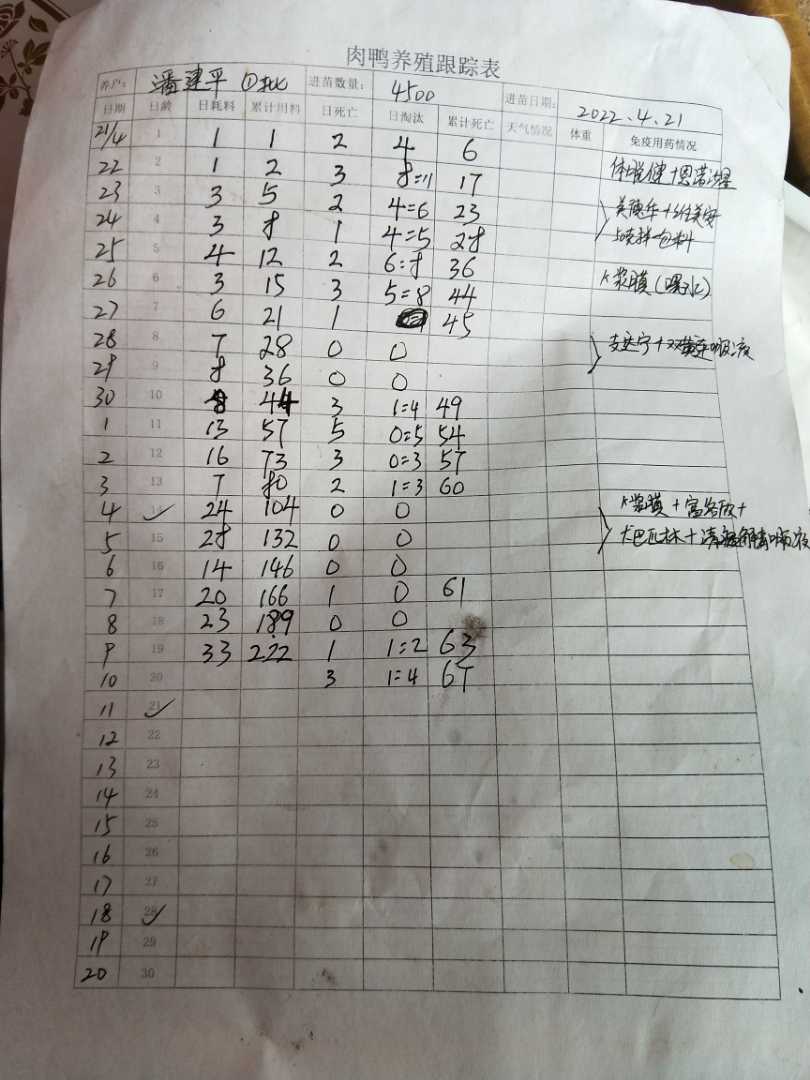 肉鸭养殖跟踪表
养户: 潘建平 ①批 进苗数量: 4500 进苗日期: 2022.4.21
日期 日龄 日耗料 累计用料 日死亡 日淘汰 累计死亡 天气情况 体重 免疫用药情况
21/4 1 1 1 2 4 6
22 2 1 2 3 8=11 17
23 3 3 5 2 4=6 23
24 4 3 8 1 4=5 28
25 5 4 12 2 6=8 36
26 6 3 15 3 5=8 44 K浆膜
27 7 6 21 1 45
28 8 7 28 0 0
29 9 8 36 0 0
30 10 8 44 3 1=4 49
1 11 13 57 5 0=5 54
2 12 16 73 3 0=3 57
3 13 7 80 2 1=3 60
4 14 24 104 0 0 K浆膜+
5 15 28 132 0 0
6 16 14 146 0 0
7 17 20 166 1 0 61
8 18 23 189 0 0
9 19 33 222 1 1=2 63
10 20 3 1=4 67
11 21
12 22
13 23
14 24
15 25
16 26
17 27
18 28
19 29
20 30